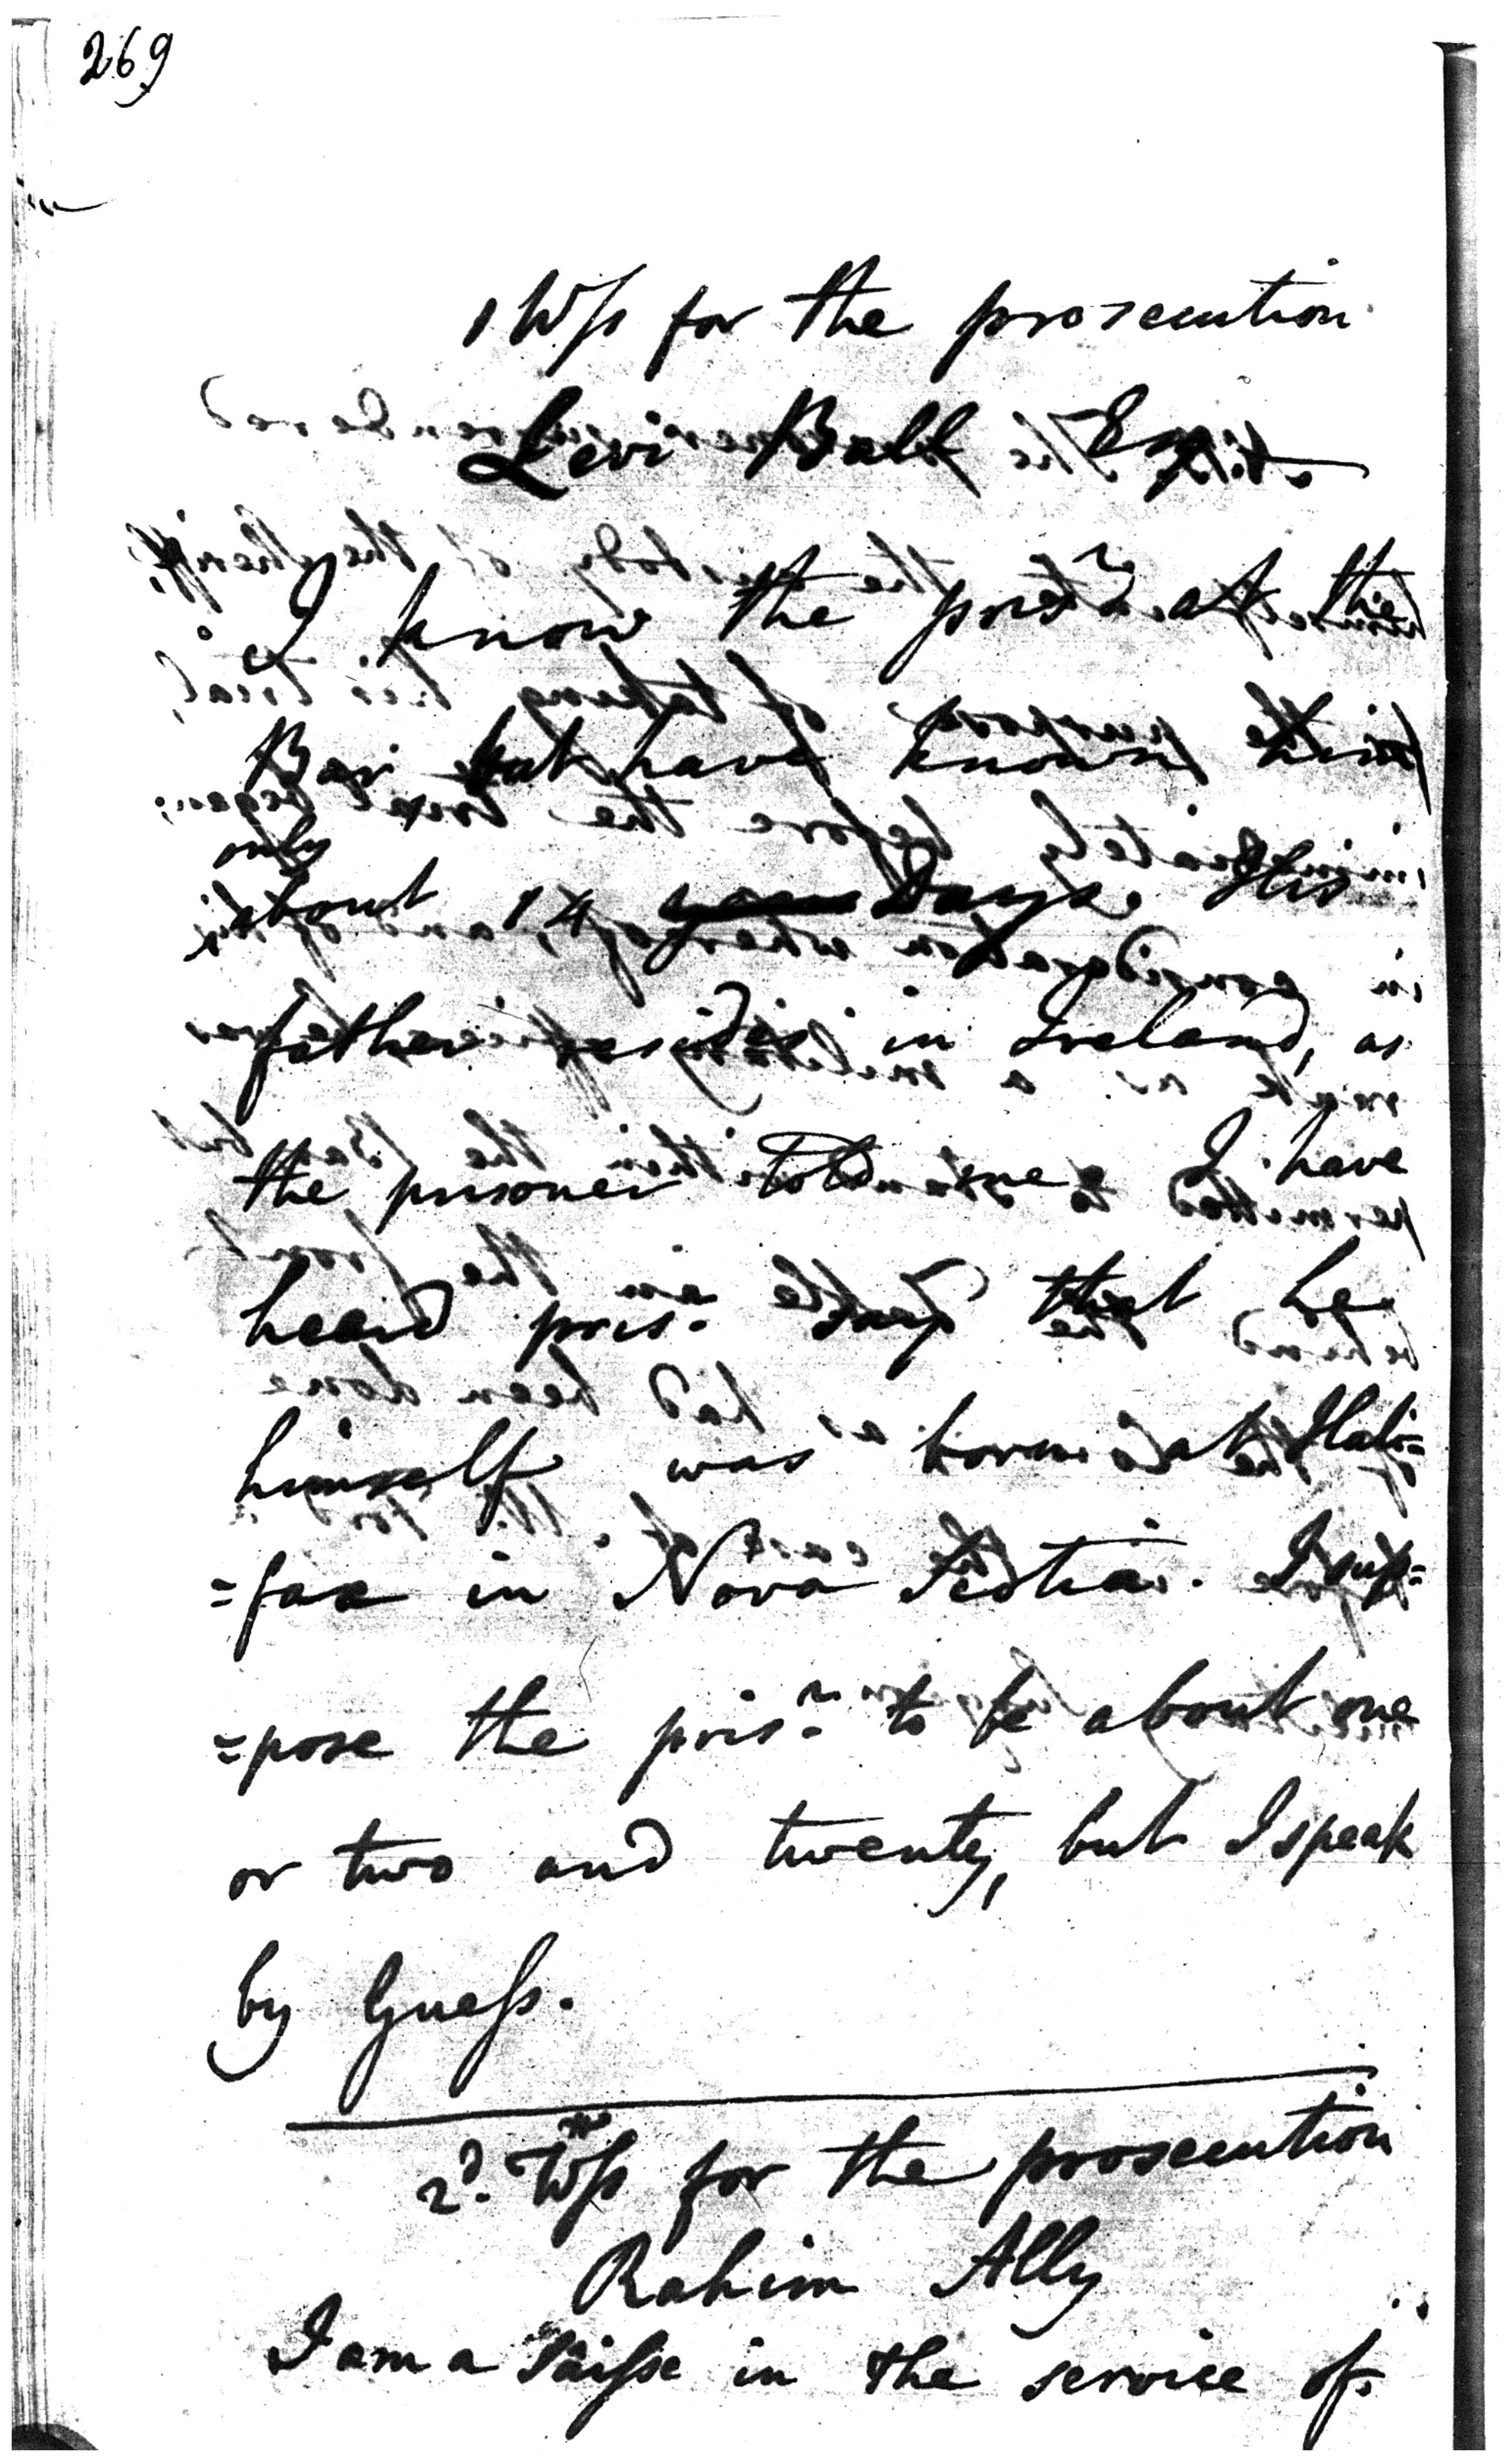 269
1 Wss for the prosecution
Levi Ball Esqr
I know the prisr at the
Bar but have known him
only
about 14 years Days. His
father resides in Ireland, as
the prisoner told me. I have
heard prisr say that he
himself was born at Hali=
=fax in Nova Scotia. I sup=
=pose the prisr to be about one
or two and twenty, but I speak
by Guess.
2d. Wss for the prosecution
Rahim Ally
I am a Saisse in the service of